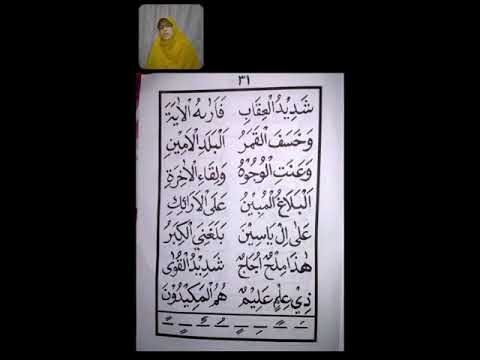 ٣١
شَدِيْدُ الْعِقَابِ فَاَرٰىهُ الْاٰيَةَ
وَخَسَفَ الْقَمَرُ اَلْبَلَدِ الْاَمِيْنِ
وَعَنَتِ الْوُجُوْهُ وَلِقَاءِ الْاٰخِرَةِ
اَلْبَلَاغُ الْمُبِيْنُ عَلَى الْاَرَائِكِ
عَلٰى اِلْ يَاسِيْنَ بَلَغَنِيَ الْكِبَرُ
هٰذَا مِلْحٌ اُجَاجٌ شَدِيْدُ الْقُوٰى
ذِيْ عِلْمٍ عَلِيْمٌ هُمُ الْمَكِيْدُوْنَ